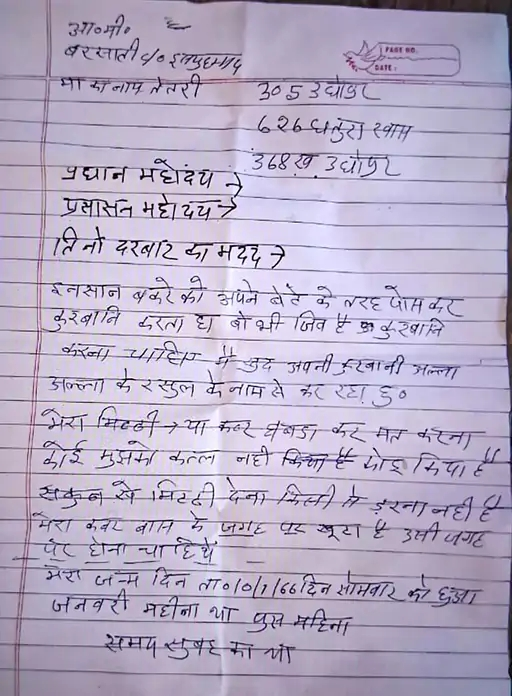 आ०मी०
बरसाती c/o
PAGE NO.
DATE:
मा का नाम तेतरी 305 उधोपुर
626 धतुरा खास
368ख उधोपुर
प्रधान महोदय →
प्रसासन महोदय →
तिनो दरबार का मदद →
इनसान बकरे को अपने बेटे के तरह पोस कर
कुरबानि करता है वो भी जिव है कुरबानि
करना चाहिए मै खुद अपनी कुरबानी अल्ला
अल्ला के रसुल के नाम से कर रहा हु०
मेरा मिट्टी → या कबर घबड़ा कर मत करना
कोई मुझको कत्ल नही किया है
सकुन से मिटटी देना किसी से डरना नही है
मेरा कबर बास के जगह पर खूटा है उसी जगह
पर होना चाहिये
मेरा जन्म दिन ता० दिन सोमवार को हुआ
जनवरी महीना या पुस महिना
समय सुबह का था